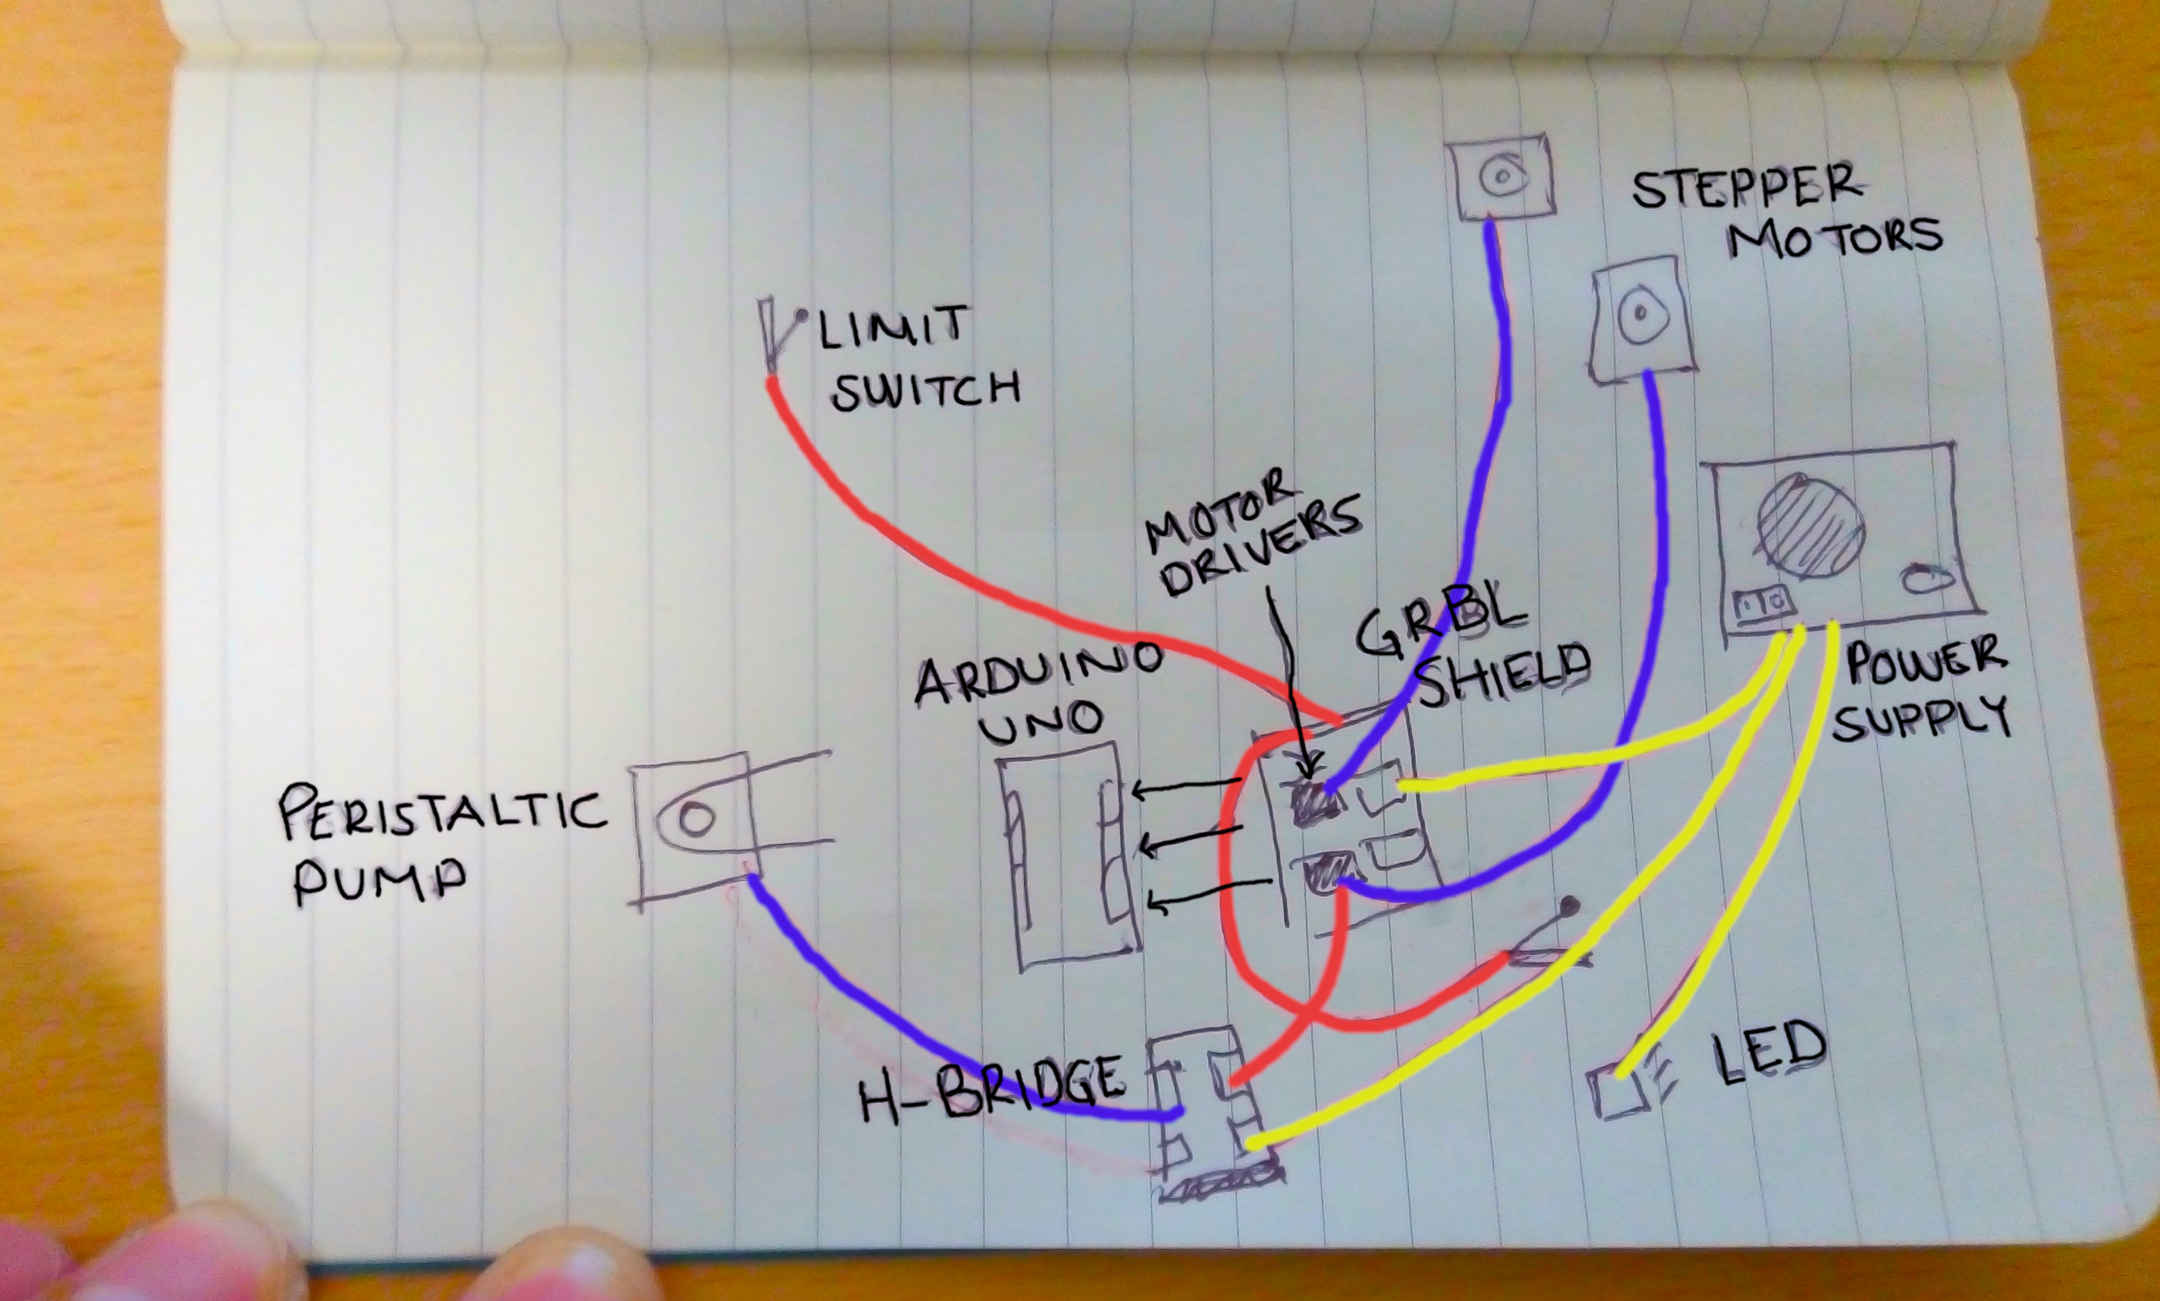 STEPPER
MOTORS
LIMIT
SWITCH
MOTOR
DRIVERS
GRBL
SHIELD
ARDUINO
UNO
POWER
SUPPLY
PERISTALTIC
PUMP
H-BRIDGE
LED